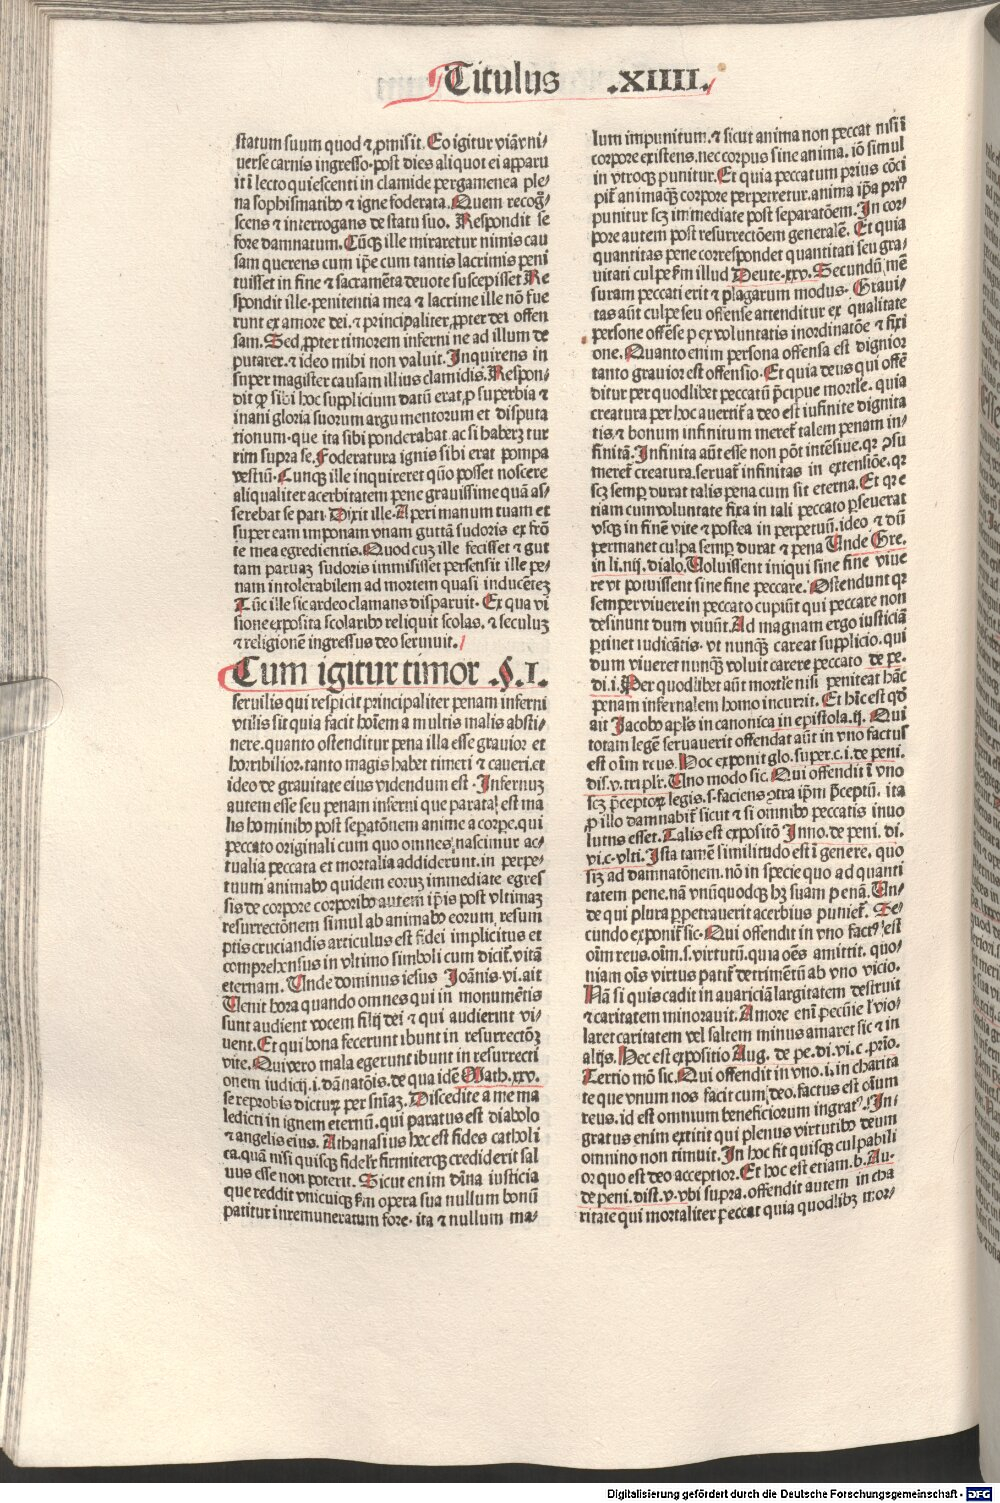 Titulus .XIIII.
statum suum quod ⁊ ꝓmisit. Eo igitur viã vni⸗
uerse carnis ingresso. post dies aliquot ei apparu
it ĩ lecto quiescenti in clamide pergamenea ple⸗
na sophismatibꝰ ⁊ igne foderata. Quem recog̃⸗
scens ⁊ interrogans de statu suo. Respondit se
fore damnatum. Cũqꝫ ille miraretur nimis cau
sam querens cum ip̃e cum tantis lacrimis peni
tuisset in fine ⁊ sacramẽta deuote suscepisset Re
spondit ille. penitentia mea ⁊ lacrime ille nõ fue
runt ex amore dei. ⁊ principaliter ꝓpter dei offen
sam. Sed ꝓpter timorem inferni ne ad illum de
putarer. ⁊ ideo mihi non valuit. Inquirens in
super magister causam illius clamidis. Respon⸗
dit ꝙ sibi hoc supplicium datũ erat ꝓ superbia ⁊
inani gloria suorum argumentorum et disputa
tionum. que ita sibi ponderabat ac si haberꝫ tur
rim supra se. Foderatura ignis sibi erat pompa
vestiũ. Cunqꝫ ille inquireret quõ posset noscere
aliqualiter acerbitatem pene grauissime quã as⸗
serebat se pati. Dixit ille. Aperi manum tuam et
super eam imponam vnam guttã sudoris ex frõ
te mea egredientis. Quod cuꝫ ille fecisset ⁊ gut
tam paruaꝫ sudoris immisisset persensit ille pe⸗
nam intolerabilem ad mortem quasi inducẽteꝫ
Tũc ille sic ardeo clamans disparuit. Ex qua vi
sione exposita scolaribꝰ reliquit scolas. ⁊ seculuꝫ
⁊ religionẽ ingressus deo seruiuit.
Cum igitur timor .§.I.
seruilis qui respicit principaliter penam inferni
vtilis sit quia facit hoĩem a multis malis absti⸗
nere. quanto ostenditur pena illa esse grauior et
horribilior. tanto magis habet timeri ⁊ caueri. et
ideo de grauitate eius videndum est. Infernuꝫ
autem esse seu penam inferni que parata est ma
lis hominibꝰ post sep̃atõnem anime a corpe. qui
peccato originali cum quo omnes nascimur ac⸗
tualia peccata et mortalia addiderunt. in perpe⸗
tuum animabꝰ quidem eoruꝫ immediate egres
sis de corpore corporibꝰ autem ip̃is post vltimaꝫ
resurrectõnem simul ab animabꝰ eorum resum
ptis cruciandis articulus est fidei implicitus et
comprehensus in vltimo simboli cum dicit̃. vitã
eternam. Unde dominus iesus Joãnis. vi. ait
Uenit hora quando omnes qui in monumẽtis
sunt audient vocem filij dei ⁊ qui audierint vi⸗
uent. Et qui bona fecerunt ibunt in resurrectõꝫ
vite. Qui vero mala egerunt ibunt in resurrecti
onem iudicij. i. dãnatõis. de qua idẽ Math. xxv.
se reprobis dicturꝰ per sñiaꝫ. Discedite a me ma
ledicti in ignem eternũ. qui paratus est diabolo
⁊ angelis eius. Athanasius hec est fides catholi
ca. quã nisi quisqꝫ fidelr̃ firmiterqꝫ crediderit sal
uus esse non poterit. Sicut enim diuina iusticia
que reddit vnicuiqꝫ ẜm opera sua nullum bonũ
patitur inremuneratum fore. ita ⁊ nullum ma⸗
lum impunitum. ⁊ sicut anima non peccat nisi ĩ
corpore existens. nec corpus sine anima. iõ simul
in vtroqꝫ punitur. Et quia peccatum prius cõci
pit̃ animaqꝫ corpore perpetretur. anima ip̃a priꝰ
punitur scꝫ immediate post separatõem. In cor⸗
pore autem post resurrectõem generalẽ. Et quia
quantitas pene correspondet quantitati seu gra⸗
uitati culpe ẜm illud Deute. xxv. Secundũ mẽ
suram peccati erit ⁊ plagarum modus. Graui⸗
tas aũt culpe seu offense attenditur ex qualitate
persone offẽse ꝑ ex voluntatis inordinatõe ⁊ fixi
one. Quanto enim persona offensa est dignior
tanto grauior est offensio. Et quia deus qui offẽ
ditur per quodlibet peccatũ p̃cipue mortle. quia
creatura per hoc auertit̃ a deo est infinite dignita
tis. ⁊ bonum infinitum meret̃ talem penam in⸗
finitã. Infinita aũt esse non põt intẽsiue. qꝛ ꝯsu
meret̃ creatura. seruat̃ infinitas in extensiõe. qꝛ
scꝫ semꝑ durat talis pena cum sit eterna. Et qꝛ e
tiam cum voluntate fixa in tali peccato ꝑseuerat
vsqꝫ in finẽ vite ⁊ postea in perpetuũ. ideo ⁊ dũ
permanet culpa semꝑ durat ⁊ pena Unde Gre.
in li. iiij. dialo. Uoluissent iniqui sine fine viue
re vt potuissent sine fine peccare. Ostendunt qꝛ
semper viuere in peccato cupiũt qui peccare non
desinunt dum viuũt. Ad magnam ergo iusticiã
ꝑtinet iudicãtis. vt nunqꝫ careat supplicio. qui
dum viueret nunqꝫ voluit carere peccato de pe.
di. i. Per quodlibet aũt mortle nisi peniteat hãc
penam infernalem homo incurrit. Et hĩc est qd̃
ait Jacobꝰ apl̃s in canonica in epistola. ij. Qui
totam legẽ seruauerit offendat aũt in vno factus
est oĩm reus. Hoc exponit glo. super. c. i. de peni.
dis. v. triplr̃. Uno modo sic. Qui offendit ĩ vno
scꝫ p̃ceptoꝝ legis. s. faciens ꝯtra ip̃m p̃ceptũ. ita
ꝓ illo damnabit̃ sicut ⁊ si omnibꝰ peccatis inuo
lutus esset. Talis est expositõ Inno. de peni. di.
vi. c. vlti. Ista tamẽ similitudo est ĩ genere. quo
siꝫ ad damnatõnem. nõ in specie quo ad quanti
tatem pene. nã vnũquodqꝫ hꝫ suam penã. Un⸗
de qui plura ꝑpetrauerit acerbius puniet̃. Se⸗
cundo exponit̃ sic. Qui offendit in vno factꝰ est
oĩm reus. oĩm. s. virtutũ. quia oẽs amittit. quo⸗
niam oĩs virtus patit̃ detrimẽtũ ab vno vicio.
Nã si quis cadit in auariciã largitatem destruit
⁊ caritatem minorauit. Amore eni̅ pecũie l̃ vio⸗
laret caritatem vel saltem minus amaret sic ⁊ in
alijs. Hec est expositio Aug. de pe. di. vi. c. prĩo.
Tertio mõ sic. Qui offendit in vno. i. in charita
te que vnum nos facit cum deo. factus est oĩum
reus. id est omnium beneficiorum ingratꝰ. In⸗
gratus enim extitit qui plenus virtutibꝰ deum
omnino non timuit. In hoc fit quisqꝫ culpabili
or quo est deo acceptior. Et hoc est etiam. b. Au.
de peni. dist. v. vbi supra. offendit autem in cha
ritate qui mortaliter peccat quia quodlibꝫ mor⸗
Digitalisierung gefördert durch die Deutsche Forschungsgemeinschaft - DFG